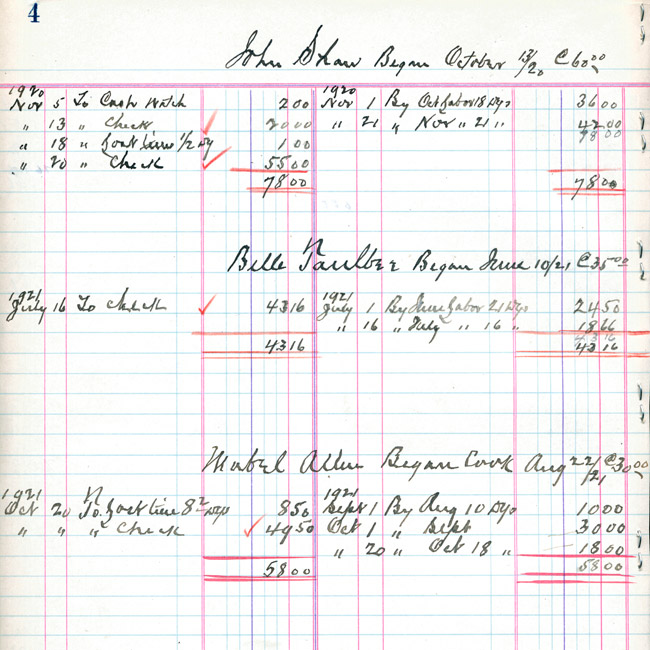 4
John Shaw Began October 13/20 @ 60 00
1920 1920
Nov 5 To Cash Watch 2 00 Nov 1 By Oct Labor 18 Dys 36 00
" 13 " Check 20 00 " 21 " Nov " 21 " 42 00
" 18 " Lost time 1/2 Dy 1 00 78 00
" 20 " Check 55 00
78 00 78 00
Belle Faulbee Began June 10/21 @ 35 00
1921 1921
July 16 To Check 43 16 July 1 By June Labor 21 Dys 24 50
" 16 " July " 16 " 18 66
43 16
43 16 43 16
Mabel Allen Began Cook Aug 22/21 @ 30 00
1921 1921
Oct 20 To Lost time 8 Dys 8 50 Sept 1 By Aug 10 Dys 10 00
" " " Check 49 50 Oct 1 " Sept 30 00
" 20 " Oct 18 " 18 00
58 00 58 00